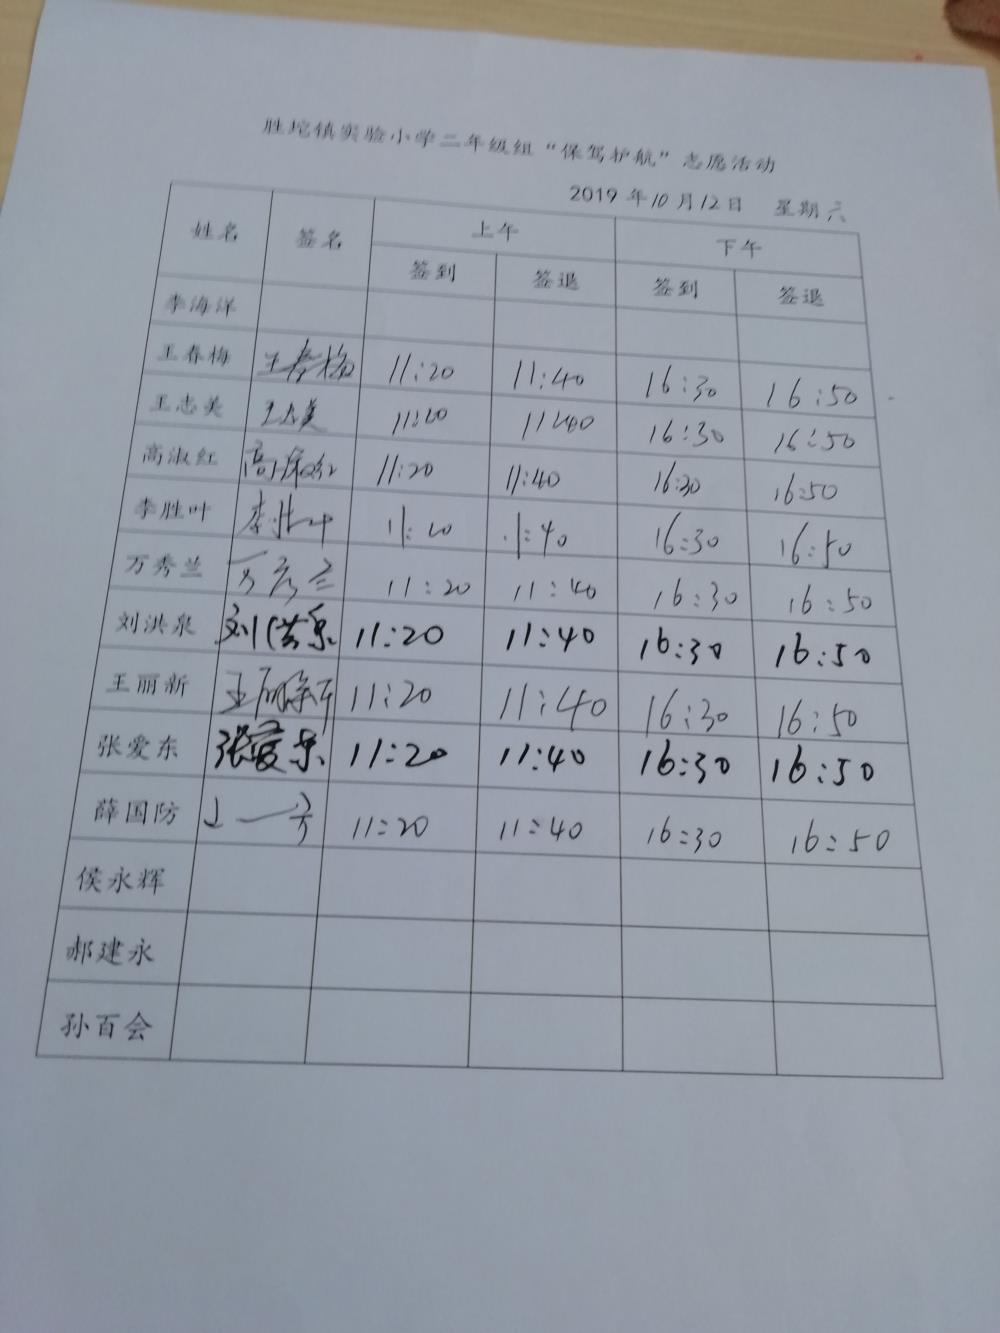 胜坨镇实验小学二年级组“保驾护航”志愿活动
2019 年 10 月 12 日 星期 六
姓名 签名 上午 下午
签到 签退 签到 签退
李海洋
王春梅 王春梅 11:20 11:40 16:30 16:50
王志美 王志美 11:20 11:40 16:30 16:50
高淑红 高淑红 11:20 11:40 16:30 16:50
李胜叶 李胜叶 11:20 11:40 16:30 16:50
万秀兰 万秀兰 11:20 11:40 16:30 16:50
刘洪泉 刘洪泉 11:20 11:40 16:30 16:50
王丽新 王丽新 11:20 11:40 16:30 16:50
张爱东 张爱东 11:20 11:40 16:30 16:50
薛国防 11:20 11:40 16:30 16:50
侯永辉
郝建永
孙百会